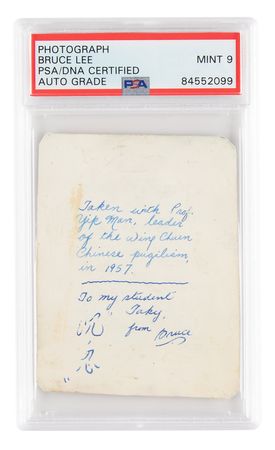 PHOTOGRAPH
BRUCE LEE
PSA/DNA CERTIFIED
AUTO GRADE
PSA
MINT 9
84552099
Taken with Prof.
Yip Man, leader
of the Wing Chun
Chinese pugilism,
in 1957.
To my student
Taky,
from Bruce